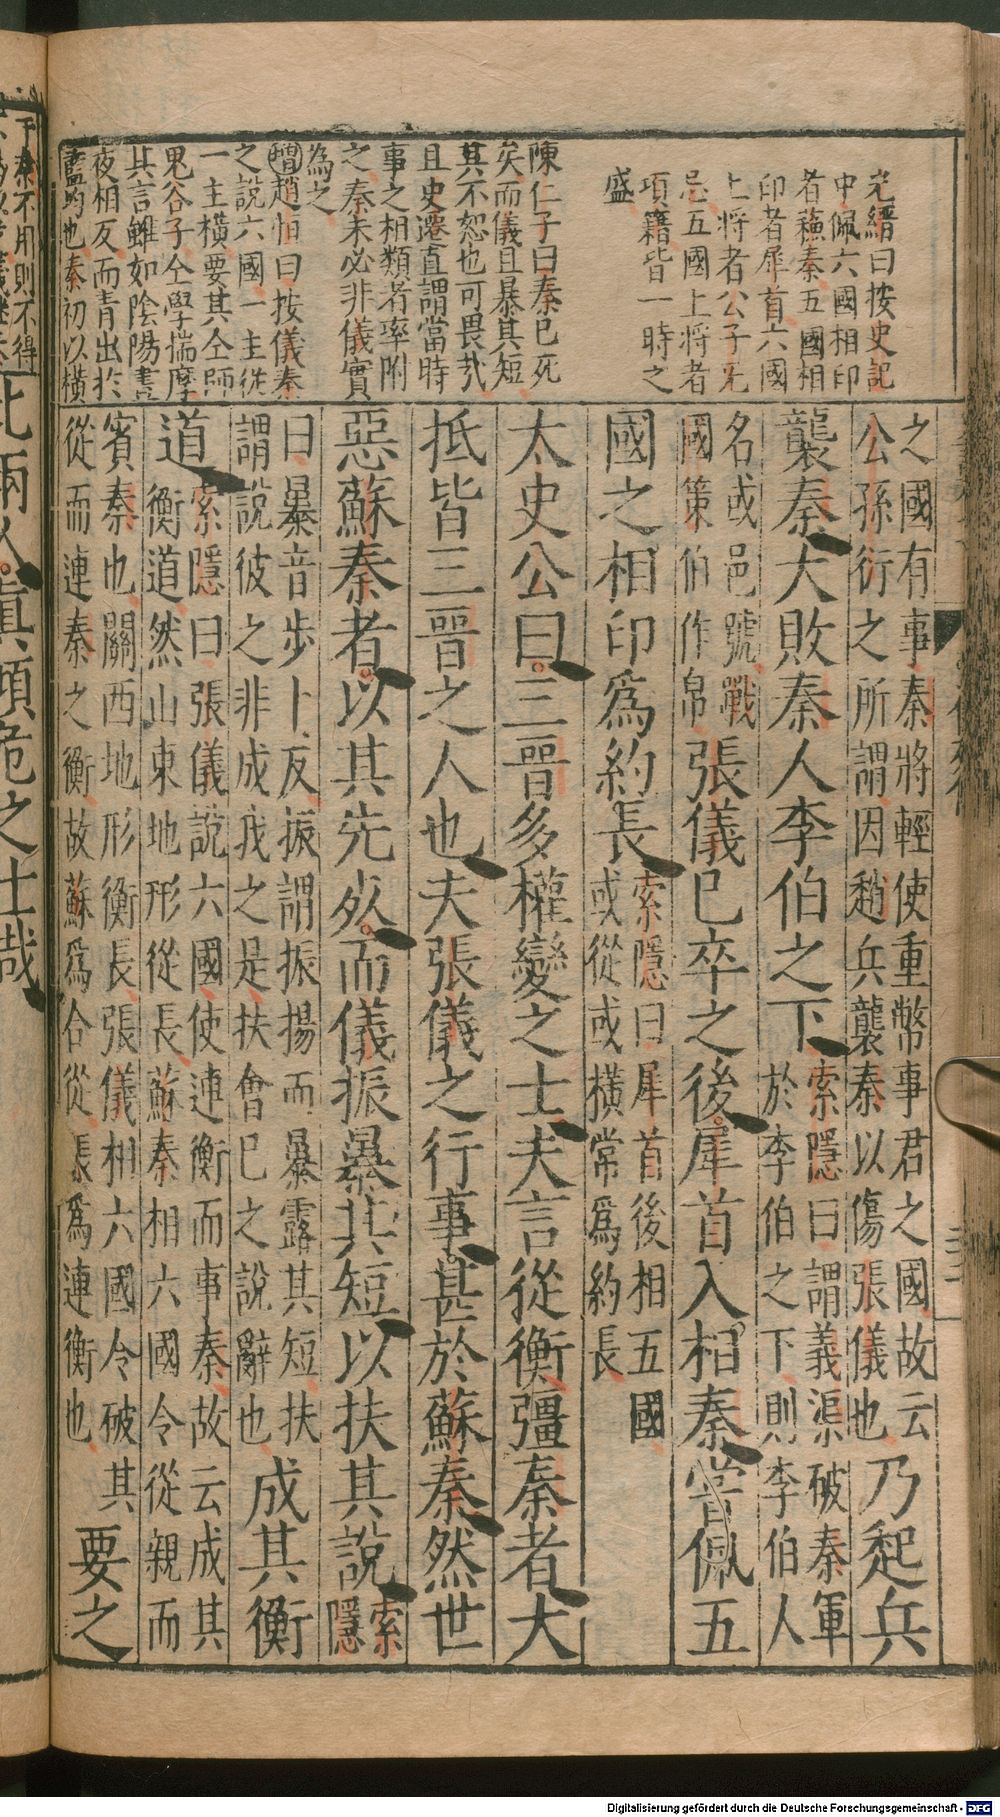 尤縉曰按史記
中佩六國相印
者蘇秦五國相
印者犀首六國
上將者公子无
忌五國上將者
項籍皆一時之
盛
陳仁子曰秦已死
矣而儀且暴其短
其不恕也可畏哉
且史遷直謂當時
事之相類者率附
之秦未必非儀實
為之
增趙恒曰按儀秦
之說六國一主從
一主橫要其仝師
鬼谷子仝學揣摩
其言雖如陰陽晝
夜相反而青出於
藍均也秦初以橫
之國有事秦將輕使重幣事君之國故云
公孫衍之所謂因趙兵襲秦以傷張儀也
乃起兵
襲秦大敗秦人李伯之下
索隱曰謂義渠破秦軍
於李伯之下則李伯人
名或邑號戰
國策伯作帛
張儀已卒之後犀首入相秦嘗佩五
國之相印爲約長
索隱曰犀首後相五國
或從或橫常爲約長
太史公曰三晉多權變之士夫言從衡彊秦者大
抵皆三晉之人也夫張儀之行事甚於蘇秦然世
惡蘇秦者以其先死而儀振暴其短以扶其說
索
隱
曰暴音步卜反振謂振揚而暴露其短扶
謂說彼之非成我之是扶會己之說辭也
成其衡
道
索隱曰張儀說六國使連衡而事秦故云成其
衡道然山東地形從長蘇秦相六國令從親而
賓秦也關西地形衡長張儀相六國令破其
從而連秦之衡故蘇爲合從張爲連衡也
要之
此兩人真傾危之士哉
Digitalisierung gefördert durch die Deutsche Forschungsgemeinschaft - DFG